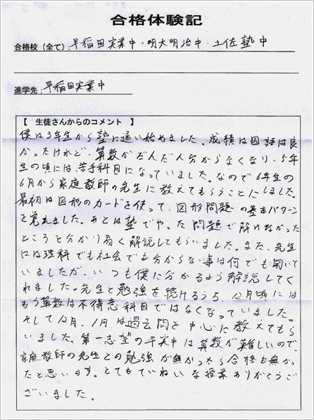 合格体験記
合格校（全て）：早稲田実業中・明大明治中・土佐塾中
進学先：早稲田実業中
【　生徒さんからのコメント　】
僕は3年生から塾に通い始めました。成績は国語は良
かったけれど、算数がだんだん分からなくなり、5年生
の頃には、苦手科目になっていました。なので6年生の
6月から家庭教師の先生に教えてもらうことにしました。
最初は図形のカードを使って、図形問題の基本パターン
を覚えました。あとは塾でやった問題で解けなかった
ところを分かり易く解説してもらいました。また、先生
には理科でも社会でも分からない事は何でも聞いて
いましたが、いつも僕に分かるよう解説してく
れました。先生と勉強を続けるうち、12月頃には
もう算数は不得意科目ではなくなっていました。
そして12月、1月は過去問を中心に教えてもら
いました。第一志望の早実中は算数が難しいので、
家庭教師の先生との勉強が無かったら合格も無かっ
たと思います。とてもていねいな授業ありがとうご
ざいました。